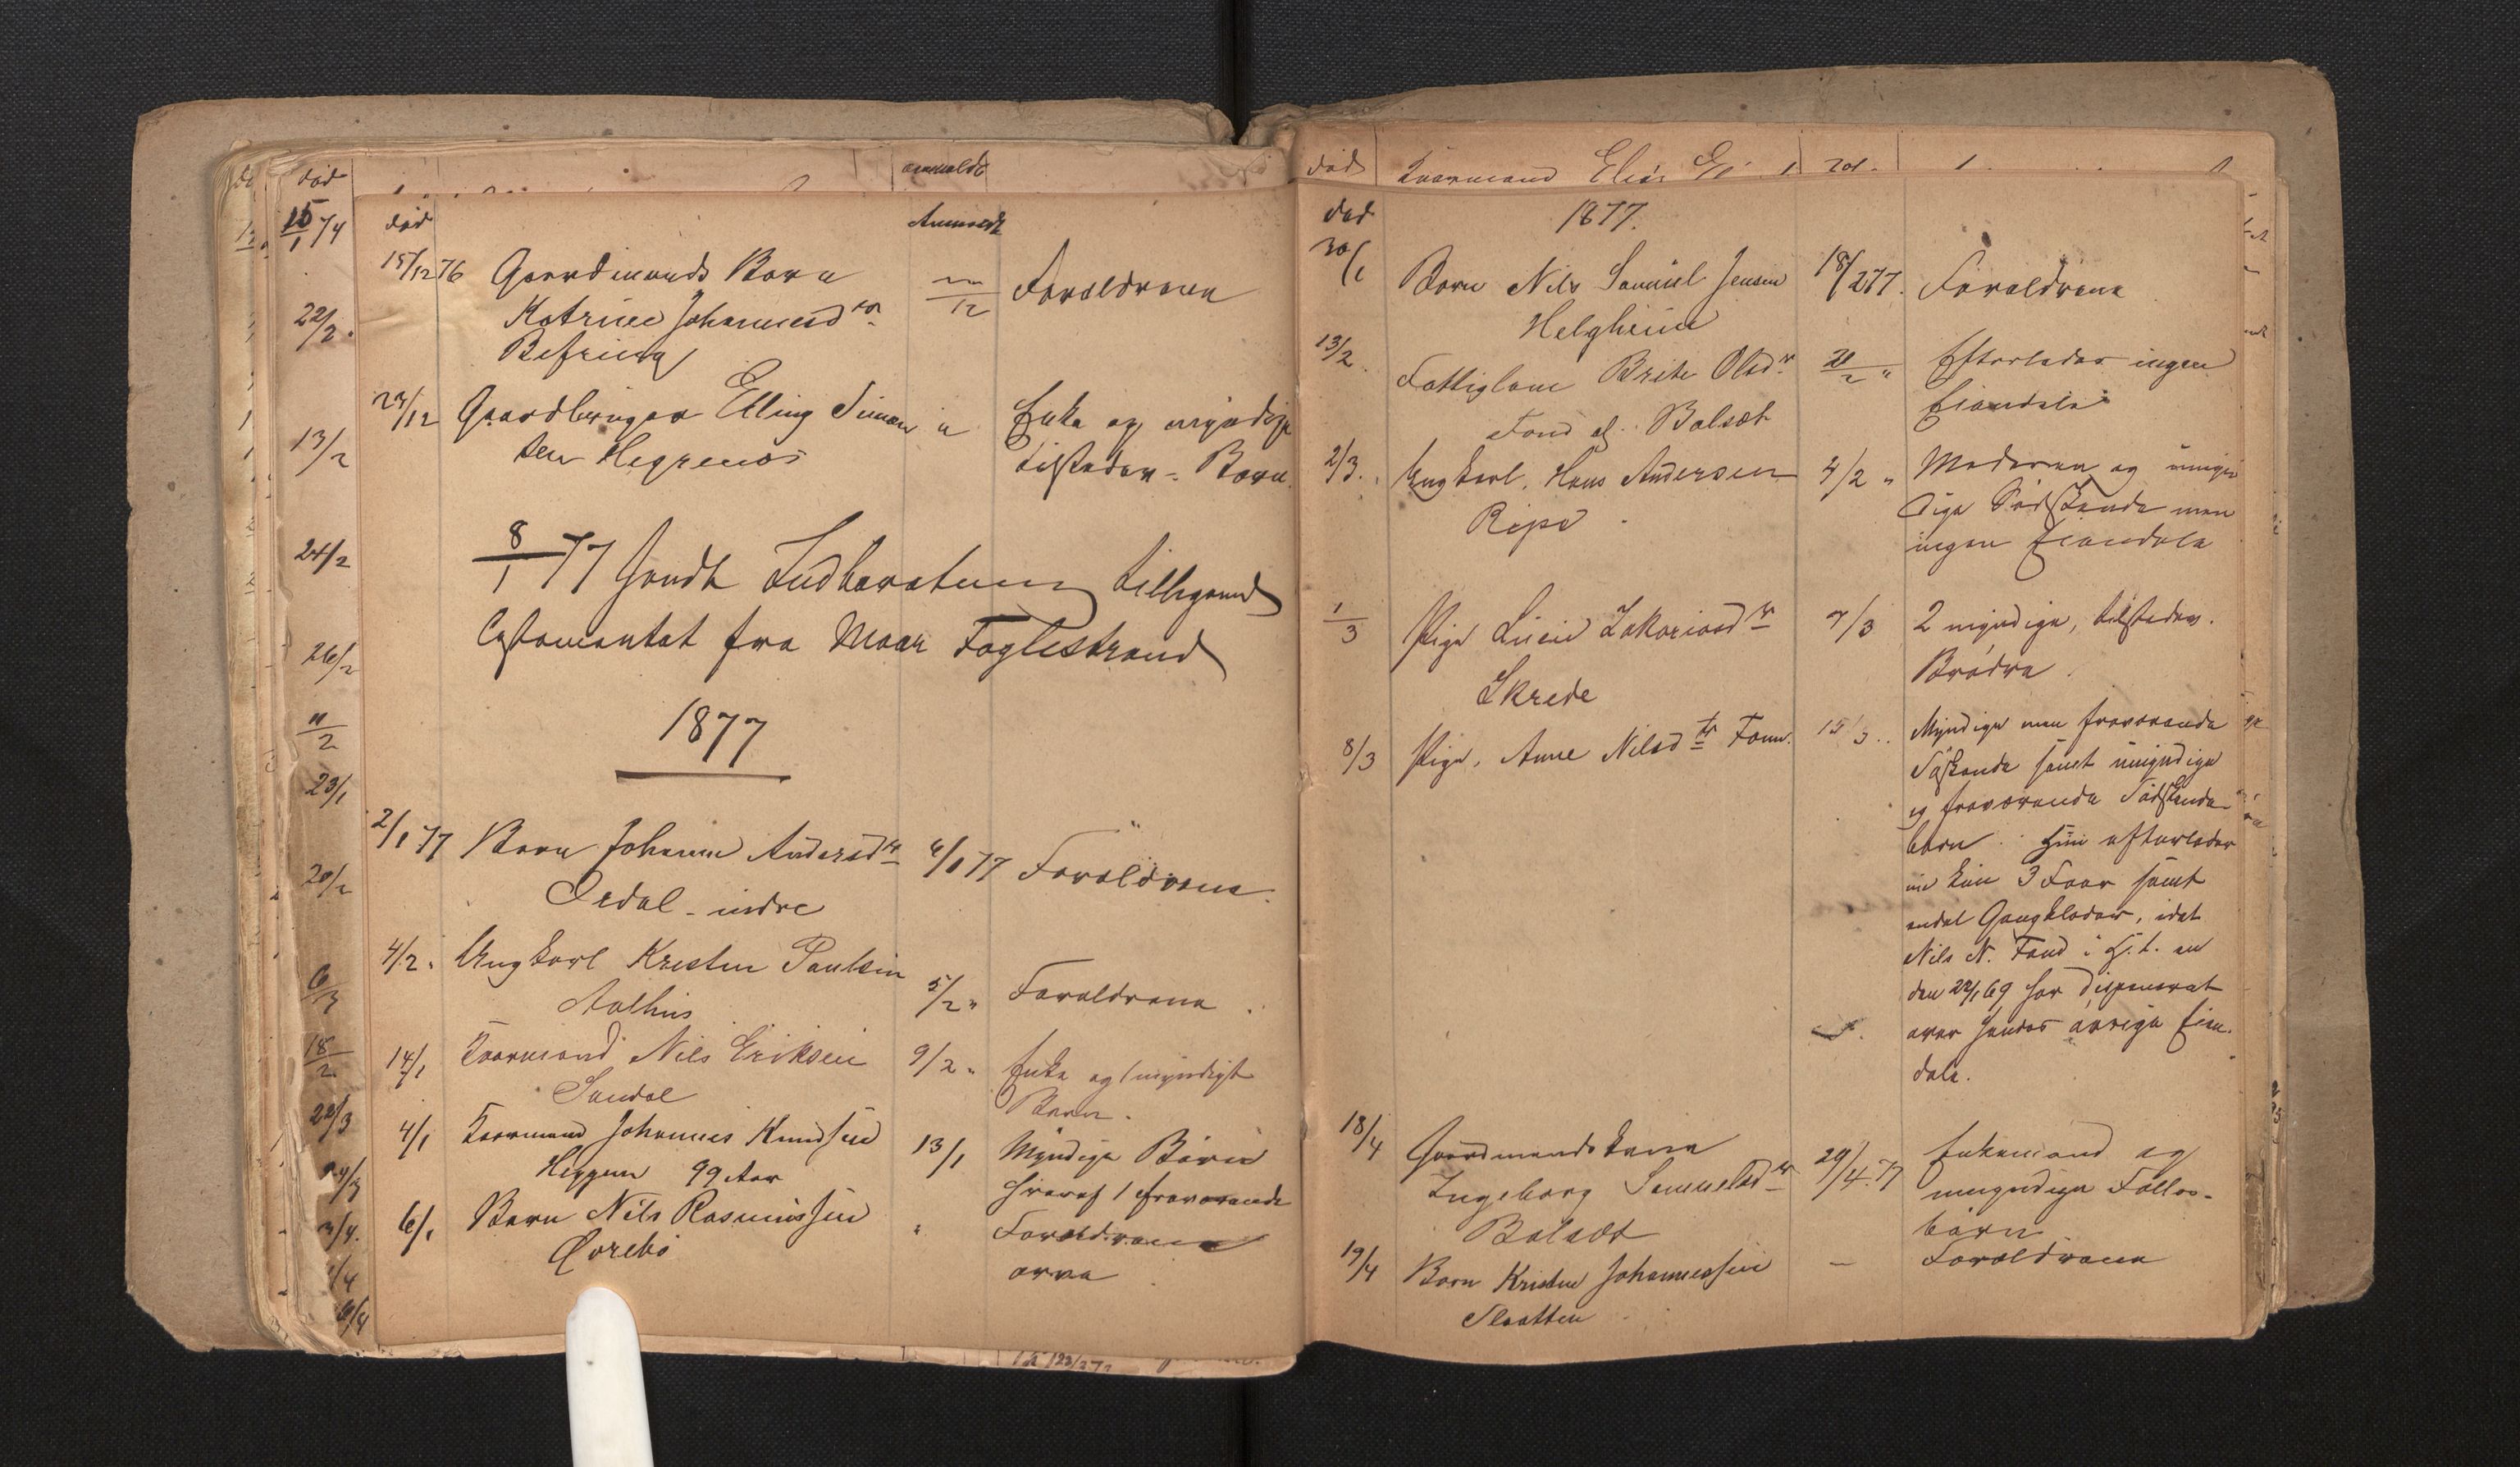 død
Anmeldt
15/12 76 Gaardmands Barn
Katrine Johannesdtr
Befring
/12 Forældrene
23/12 Gaardbruger Elling Simon
sen Hegrenæs
" Enke og myndige
tilsteder- Børn.
8/1 77 sendt Indberetning
Testamentet fra Moar Foglestrand
1877
2/1 77 Barn Johanne Andersdtr
Ordal - indre
6/1 77 Forældrene.
4/2. Ungkarl Kresten Paulsen
Aalhus
5/2 " Forældrene.
14/1 Kaarmand Nils Eriksen
Sandal
9/2 " Enke og myndigt
Barn.
4/1 Kaarmand Johannes Knudsen
Heggem 99 Aar
13/1 Myndige Børn
hvoraf 1 fraværende
6/1 Barn Nils Rasmussen
Øvrebø
" Forældrene
arve
død 1877.
30/1 Barn Nils Samuel Jensen
Helgheim
18/2 77. Forældrene
13/2 Fattiglem Brite Olsdtr
Fond af Balsæt
21/2 " Efterlader ingen
Eiendele
2/3. Ungkarl. Hans Andersen
Ripe
4/2 " Moderen og umyn
dige Sødskende men
ingen Eiendele
1/3 Pige Lucie Zakariasdtr
Skrede
7/3 2 myndige, tilstedev.
Brødre.
8/3 Pige, Anne Nilsdtr Fonn.
15/3.. Myndige men fraværende
Søskende samt umyndige
og fraværende Sødskende-
børn. Hun efterlader
kun 3 Faar samt
endel Gangklæder, idet
Nils N. Fond i H.t. en
den 22/1 69 har disponeret
over hendes øvrige Eien-
dele.
18/4 Gaardmandskone
Ingeborg Samuelsdtr
Balsæt
24/4.77 Enkemand og
umyndige Fælles-
børn
19/4 Barn Kristen Johannessen
Slaatten
— Forældrene